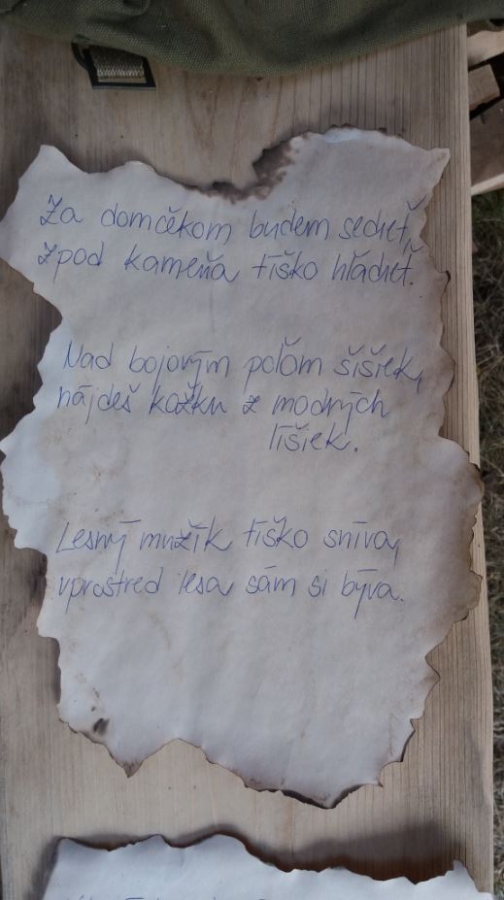 Za domčekom budem sedieť,
zpod kameňa tíško hľadieť.
Nad bojovým poľom šišiek,
nájdeš kožku z modrých
líšiek.
Lesný mužík tíško sníva,
uprostred lesa sám si býva.